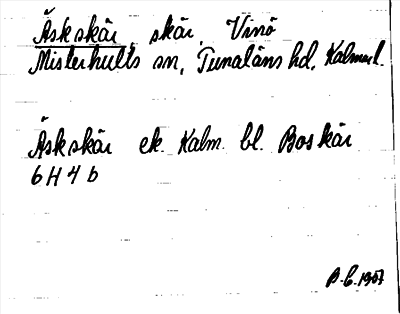 Äskskär, skär, Vinö
Misterhults sn, Tunaläns hd, Kalmar l.
Äskskär ek. Kalm. bl. Boskär
6H4b
1907